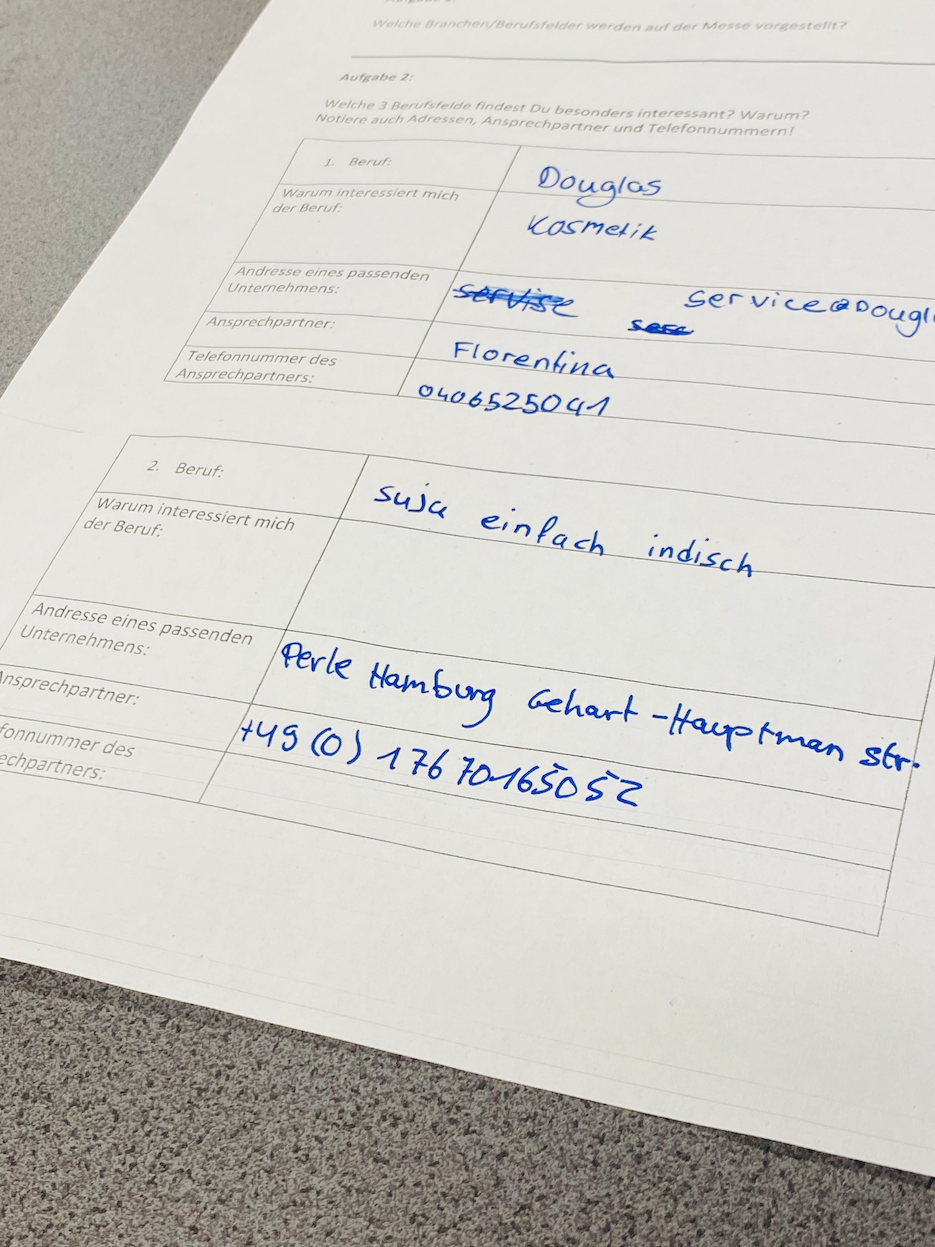 Welche Branchen/Berufsfelder werden auf der Messe vorgestellt?
Aufgabe 2:
Welche 3 Berufsfelde findest Du besonders interessant? Warum?
Notiere auch Adressen, Ansprechpartner und Telefonnummern!
1. Beruf:
Douglas
Warum interessiert mich
der Beruf:
Kosmetik
Andresse eines passenden
Unternehmens:
servise
service@Dougl
Ansprechpartner:
Florentina
Telefonnummer des
Ansprechpartners:
0406525041
2. Beruf:
suja einfach indisch
Warum interessiert mich
der Beruf:
Andresse eines passenden
Unternehmens:
Perle Hamburg Gehart-Hauptman str.
Ansprechpartner:
+49 (0) 176 70165052
fonnummer des
echpartners: